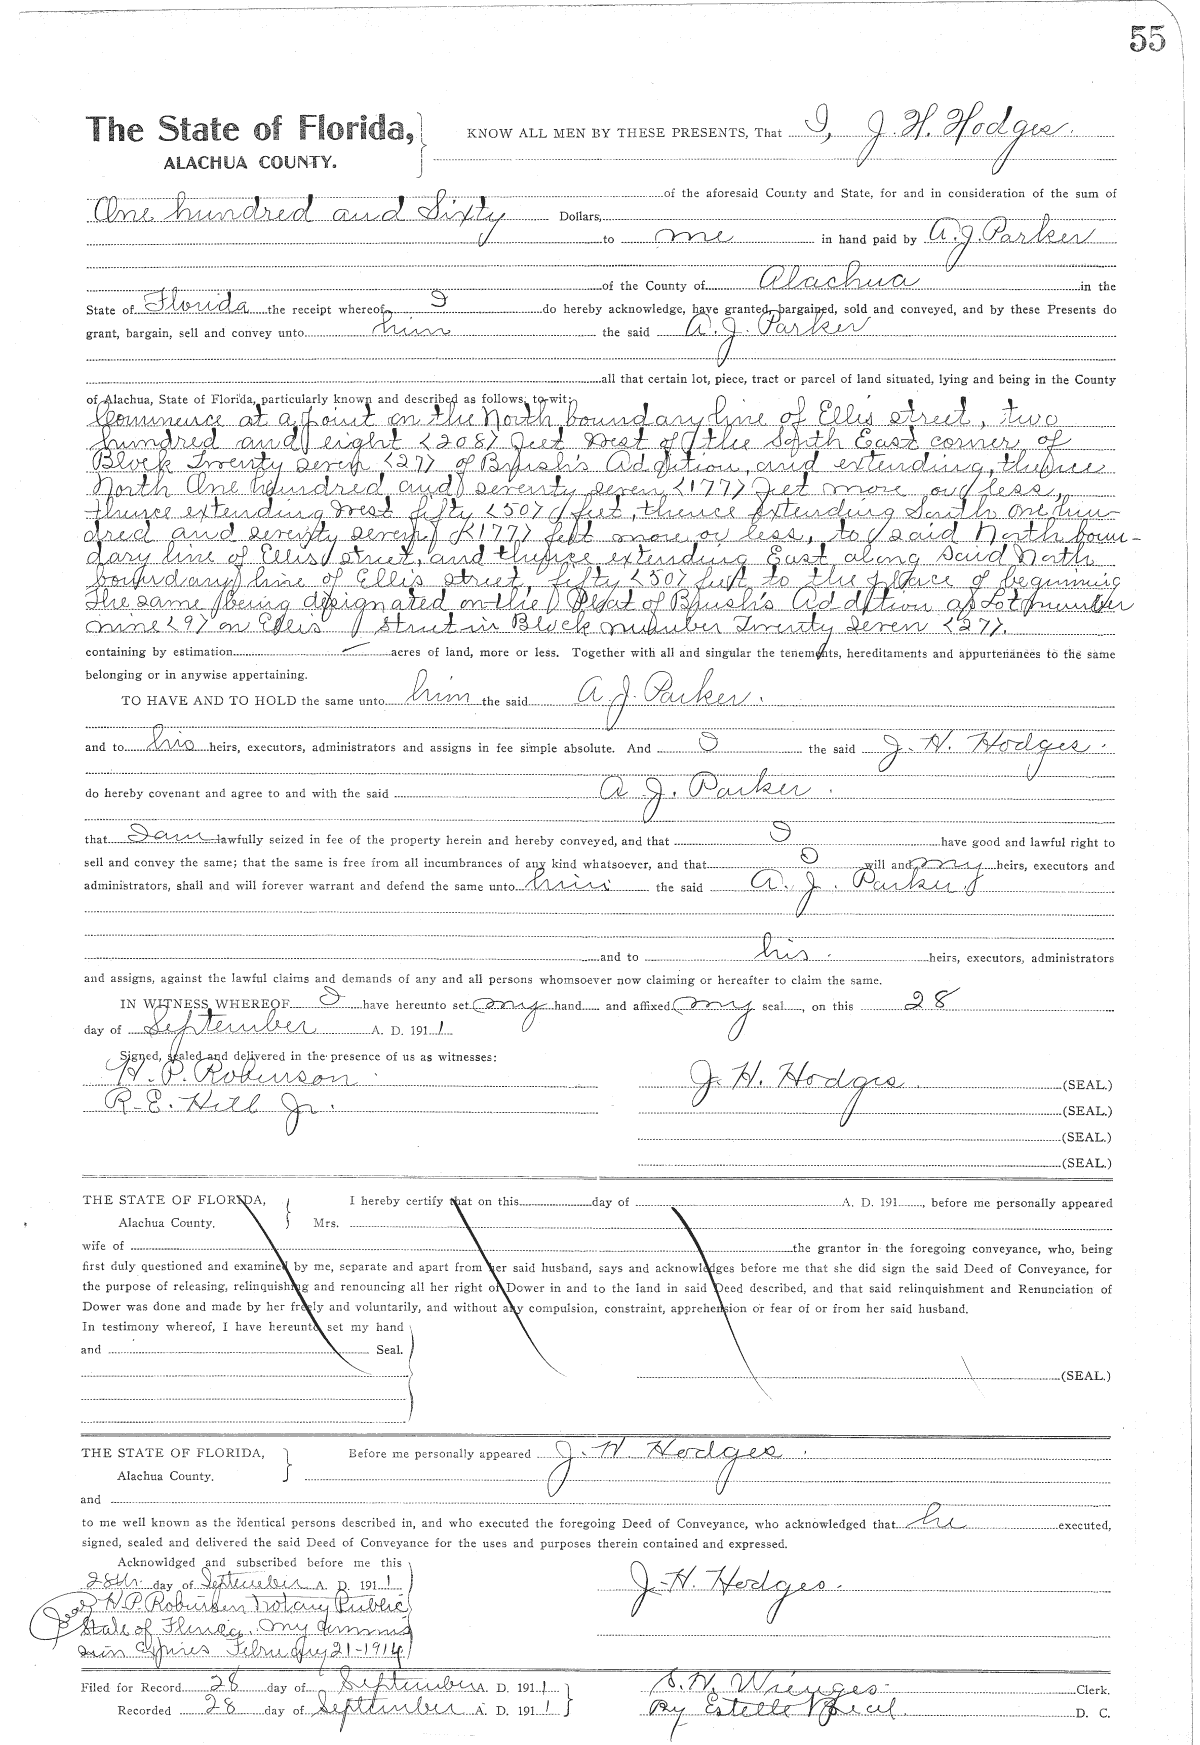 55
The State of Florida,
ALACHUA COUNTY.
KNOW ALL MEN BY THESE PRESENTS, That I, J. H. Hodges.
of the aforesaid County and State, for and in consideration of the sum of
One hundred and Sixty Dollars,
to me in hand paid by A. J. Parker
of the County of Alachua in the
State of Florida the receipt whereof I do hereby acknowledge, have granted, bargained, sold and conveyed, and by these Presents do
grant, bargain, sell and convey unto him the said A. J. Parker
all that certain lot, piece, tract or parcel of land situated, lying and being in the County
of Alachua, State of Florida, particularly known and described as follows, to-wit:
Commence at a point on the North boundary line of Ellis street, two
hundred and eight <208> feet West of the South East corner of
Block Twenty seven <27> of Brush's Addition, and extending thence
North One hundred and seventy seven <177> feet more or less,
thence extending West fifty <50> feet, thence extending South one hun-
dred and seventy seven <177> feet more or less, to said North boun-
dary line of Ellis street, and thence extending East along said North
boundary line of Ellis street, fifty <50> feet to the place of beginning
The same being designated on the Plat of Brush's Addition as Lot number
nine <9> on Ellis Street in Block number Twenty Seven <27>.
containing by estimation acres of land, more or less. Together with all and singular the tenements, hereditaments and appurtenances to the same
belonging or in anywise appertaining.
TO HAVE AND TO HOLD the same unto him the said A. J. Parker.
and to his heirs, executors, administrators and assigns in fee simple absolute. And I the said J. H. Hodges.
do hereby covenant and agree to and with the said A. J. Parker.
that I am lawfully seized in fee of the property herein and hereby conveyed, and that I have good and lawful right to
sell and convey the same; that the same is free from all incumbrances of any kind whatsoever, and that I will and my heirs, executors and
administrators, shall and will forever warrant and defend the same unto him the said A. J. Parker
and to his heirs, executors, administrators
and assigns, against the lawful claims and demands of any and all persons whomsoever now claiming or hereafter to claim the same.
IN WITNESS WHEREOF I have hereunto set my hand and affixed my seal, on this 28
day of September A. D. 1911.
Signed, sealed and delivered in the presence of us as witnesses:
H. P. Robinson
J. H. Hodges (SEAL.)
R. E. Hill Jr. (SEAL.)
(SEAL.)
(SEAL.)
THE STATE OF FLORIDA, I hereby certify that on this day of A. D. 191, before me personally appeared
Alachua County. Mrs.
wife of the grantor in the foregoing conveyance, who, being
first duly questioned and examined by me, separate and apart from her said husband, says and acknowledges before me that she did sign the said Deed of Conveyance, for
the purpose of releasing, relinquishing and renouncing all her right of Dower in and to the land in said Deed described, and that said relinquishment and Renunciation of
Dower was done and made by her freely and voluntarily, and without any compulsion, constraint, apprehension or fear of or from her said husband.
In testimony whereof, I have hereunto set my hand
and Seal.
(SEAL.)
THE STATE OF FLORIDA, Before me personally appeared J. H. Hodges.
Alachua County.
and
to me well known as the identical persons described in, and who executed the foregoing Deed of Conveyance, who acknowledged that he executed,
signed, sealed and delivered the said Deed of Conveyance for the uses and purposes therein contained and expressed.
Acknowldged and subscribed before me this
28th day of September A. D. 1911
J. H. Hodges.
Seal H. P. Robinson Notary Public
State of Florida. My Commis
sion Expires February 21-1914.
Filed for Record 28 day of September A. D. 1911 S. H. Wienges Clerk.
Recorded 28 day of September A. D. 1911 By Estelle Beal D. C.